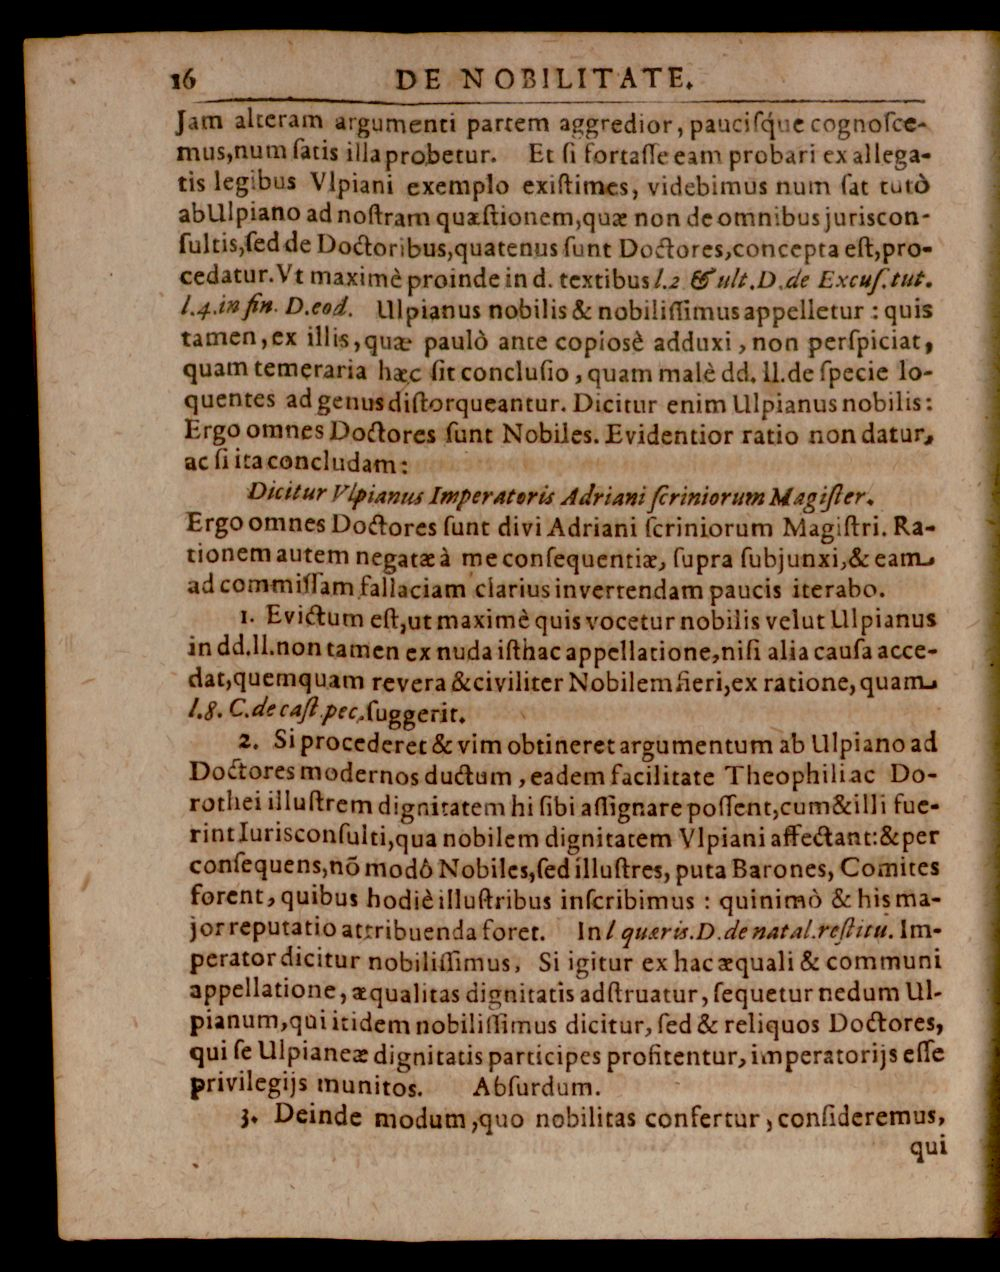 16 DE NOBILITATE.
Jam alteram argumenti partem aggredior, pauciſq́ue cognoſce-
mus, num ſatis illa probetur. Et ſi fortaſſe eam probari ex allega-
tis legibus Vlpiani exemplo exiſtimes, videbimus num ſat tutò
ab Ulpiano ad noſtram quæſtionem, quæ non de omnibus juriscon-
ſultis, ſed de Doctoribus, quatenus ſunt Doctores, concepta eſt, pro-
cedatur. Vt maximè proinde in d. textibus l.2 & ult. D. de Excuſ. tut.
l.4. in fin. D. eod. Ulpianus nobilis & nobiliſſimus appelletur : quis
tamen, ex illis, quæ paulò ante copiosè adduxi, non perſpiciat,
quam temeraria hæc ſit concluſio, quam malè dd. ll. de ſpecie lo-
quentes ad genus diſtorqueantur. Dicitur enim Ulpianus nobilis:
Ergo omnes Doctores ſunt Nobiles. Evidentior ratio non datur,
ac ſi ita concludam:
Dicitur Vlpianus Imperatoris Adriani ſcriniorum Magiſter.
Ergo omnes Doctores ſunt divi Adriani ſcriniorum Magiſtri. Ra-
tionem autem negatæ à me conſequentiæ, ſupra ſubjunxi, & eam
ad commiſſam fallaciam clarius invertendam paucis iterabo.
1. Evictum eſt, ut maximè quis vocetur nobilis velut Ulpianus
in dd. ll. non tamen ex nuda iſthac appellatione, niſi alia cauſa acce-
dat, quemquam revera & civiliter Nobilem fieri, ex ratione, quam
l.8. C. de caſt. pec. ſuggerit.
2. Si procederet & vim obtineret argumentum ab Ulpiano ad
Doctores modernos ductum, eadem facilitate Theophili ac Do-
rothei illuſtrem dignitatem hi ſibi aſſignare poſſent, cum & illi fue-
rint Iurisconſulti, qua nobilem dignitatem Vlpiani affectant: & per
conſequens, nõ modô Nobiles, ſed illuſtres, puta Barones, Comites
forent, quibus hodiè illuſtribus inſcribimus : quinimò & his ma-
jor reputatio attribuenda foret. In l quæris. D. de natal. reſtitu. Im-
perator dicitur nobiliſſimus, Si igitur ex hac æquali & communi
appellatione, æqualitas dignitatis adſtruatur, ſequetur nedum Ul-
pianum, qui itidem nobiliſſimus dicitur, ſed & reliquos Doctores,
qui ſe Ulpianeæ dignitatis participes profitentur, imperatorijs eſſe
privilegijs munitos. Abſurdum.
3. Deinde modum, quo nobilitas confertur, conſideremus,
qui